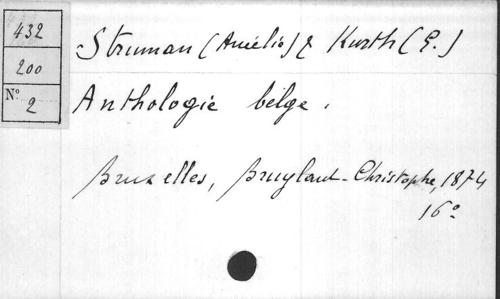 432
200
N° 2
Struman (Amélie) & Kurth (G.)
Anthologie belge.
Bruxelles, Bruylant-Christophe, 1874
16°